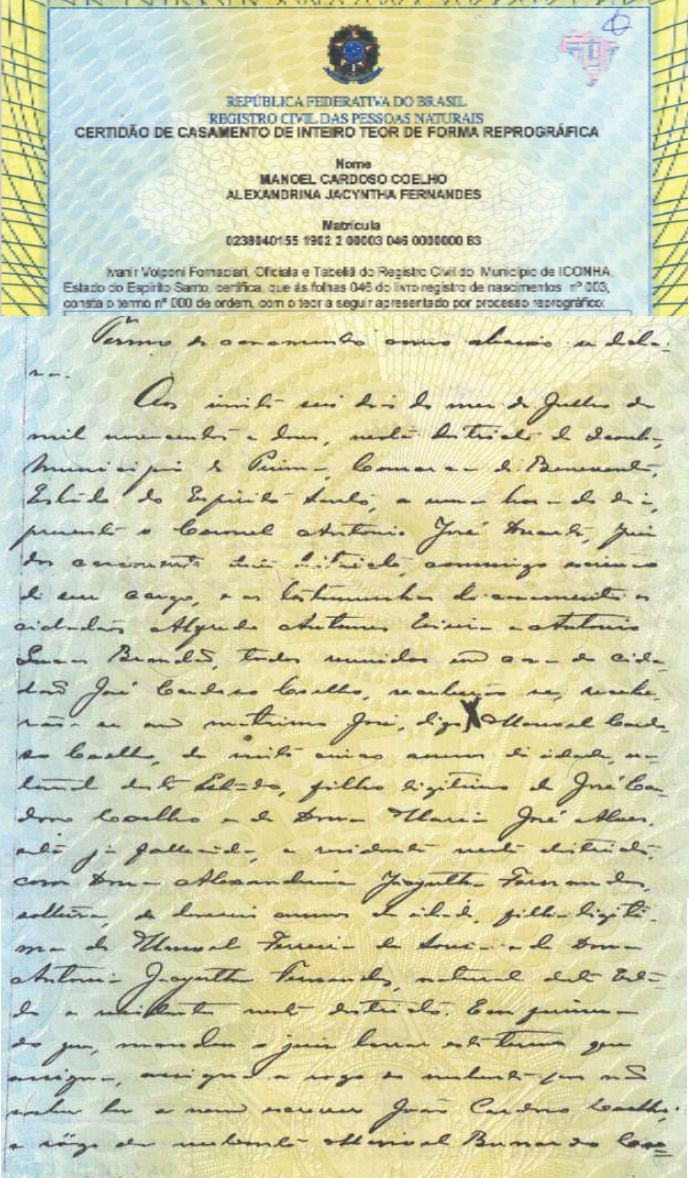 REPÚBLICA FEDERATIVA DO BRASIL
REGISTRO CIVIL DAS PESSOAS NATURAIS
CERTIDÃO DE CASAMENTO DE INTEIRO TEOR DE FORMA REPROGRÁFICA
Nome
MANOEL CARDOSO COELHO
ALEXANDRINA JACYNTHA FERNANDES
Matrícula
0238040155 1902 2 00003 046 0000000 83
Ivanir Volponi Fornaciari, Oficiala e Tabeliã do Registro Civil do Município de ICONHA,
Estado do Espírito Santo, certifica, que às folhas 046 do livro registro de nascimentos nº 003,
consta o termo nº 000 de ordem, com o teor a seguir apresentado por processo reprográfico:
Termo de casamento como abaixo se decla-
ra.
Aos vinte seis dias do mez de Julho de
mil novecentos e dous, neste districto de Iconha,
Municipio de Piuma, Comarca de Benevente,
Estado do Espirito Santo, a uma hora do dia,
presente o Coronel Antonio José Duarte, juiz
dos casamentos deste districto, commigo escrivão
de seu cargo, e as testemunhas do casamento os
cidadãos Alfredo Antunes e Antonio
Lucas Brandão, todos reunidos em casa do cida-
dão José Cardoso Coelho, receberão se, recebe-
rão se em matrimonio José, digo Manoel Cardo-
so Coelho, de vinte cinco annos de idade, na-
tural deste Estado, filho legitimo de José Car-
doso Coelho e de Dona Maria José Alves,
esta já fallecida, e residente neste districto,
com Dona Alexandrina Jacyntha Fernandes,
solteira, de annos de idade, filha legiti-
ma de Manoel Ferreira de Souza e de Dona
Antonia Jacyntha Fernandes, natural deste Esta-
do e residente neste districto. Em firmeza
do que, mandou o juiz lavrar este termo que
assigna, assigna a rogo do nubente por não
saber ler e nem escrever João Cardoso Coelho,
a rôgo da nubente Manoel Bernardo